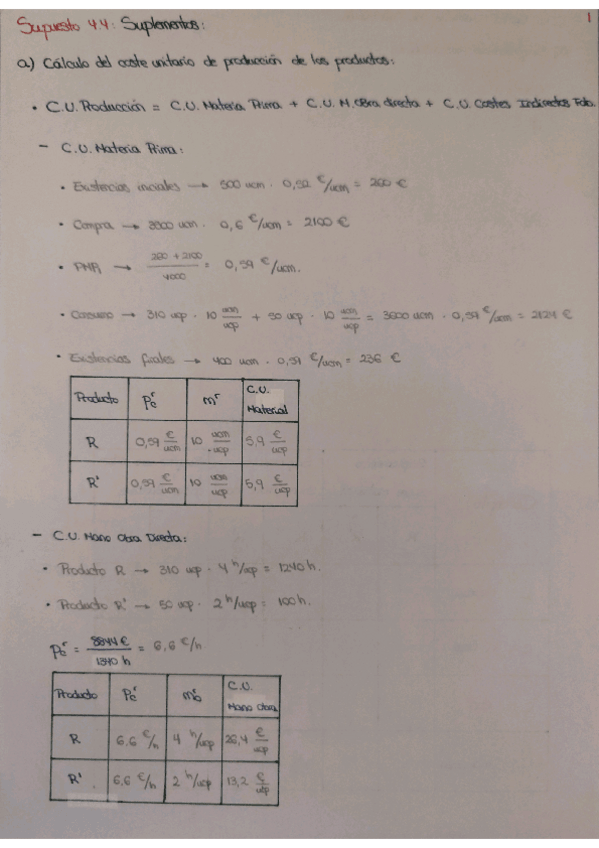 1
Supuesto 4.4: Suplementos:
a) Cálculo del coste unitario de producción de los productos:
• C.U. Producción = C.U. Materia Prima + C.U. M. Obra directa + C.U. Costes Indirectos Fab.
– C.U. Materia Prima:
• Existencias iniciales → 500 ucm · 0,52 €/ucm = 260 €
• Compra → 3500 ucm · 0,6 €/ucm = 2100 €
• PMP → (260 + 2100)/4000 = 0,59 €/ucm.
• Consumo → 310 ucp · 10 ucm/ucp + 50 ucp · 10 ucm/ucp = 3600 ucm · 0,59 €/ucm = 2124 €
• Existencias finales → 400 ucm · 0,59 €/ucm = 236 €
Producto pᶜʳ mʳ C.U. Material
R 0,59 €/ucm 10 ucm/ucp 5,9 €/ucp
R' 0,59 €/ucm 10 ucm/ucp 5,9 €/ucp
– C.U. Mano Obra Directa:
• Producto R → 310 ucp · 4 h/ucp = 1240 h.
• Producto R' → 50 ucp · 2 h/ucp = 100 h.
pᶜʳ = 8844 €/1340 h = 6,6 €/h
Producto pᶜʳ mᵇʳ C.U. Mano Obra
R 6,6 €/h 4 h/ucp 26,4 €/ucp
R' 6,6 €/h 2 h/ucp 13,2 €/ucp